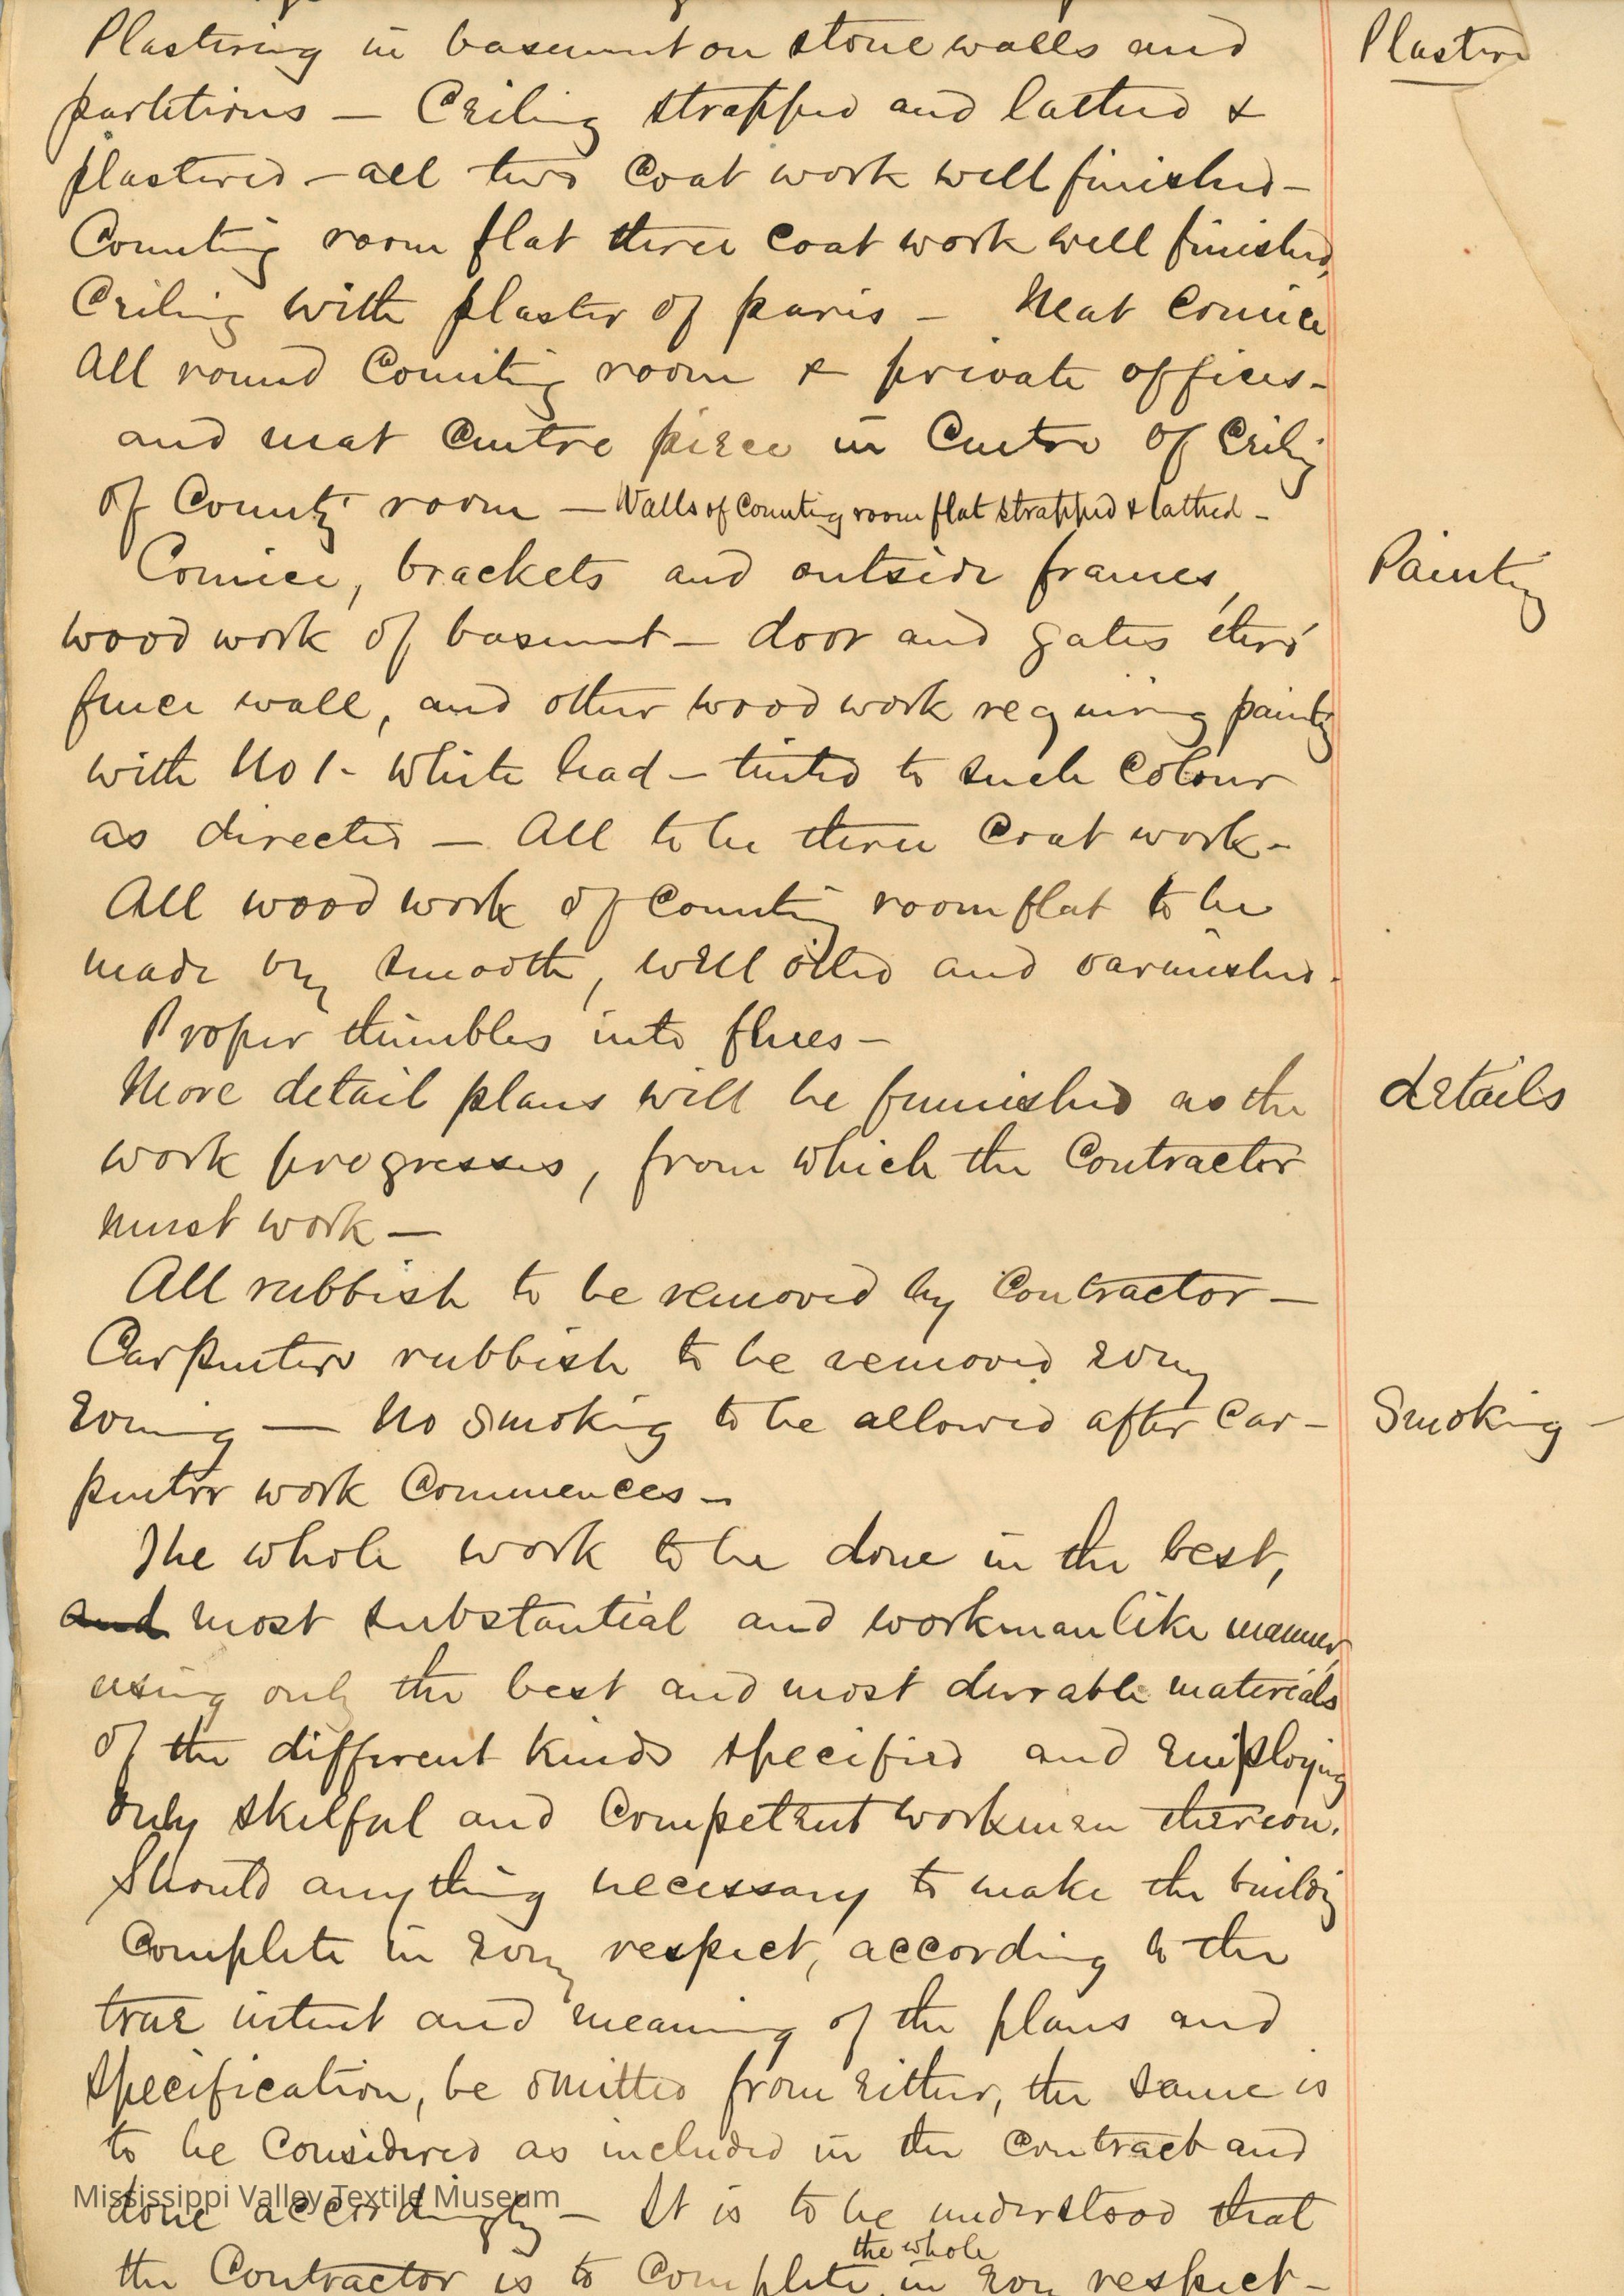 Plastering in basement on stone walls and
Plastering
partitions — Ceiling strapped and lathed &
plastered — all two coat work well finished —
Counting room flat three coat work well finished,
Ceiling with plaster of paris — Neat Cornice
All round Counting room & private offices —
and neat Centre piece in Centre of Ceiling
of Counting room — Walls of Counting room flat strapped & lathed —
Cornice, brackets and outside frames,
Painting
wood work of basement — door and gates thro'
fence wall, and other wood work requiring painting
with No 1 - White lead — tinted to such Colour
as directed — All to be three Coat work —
All wood work of Counting room flat to be
made very smooth, well oiled and varnished.
Proper thimbles into flues —
More detail plans will be furnished as the
details
work progresses, from which the Contractor
must work —
All rubbish to be removed by Contractor —
Carpenters rubbish to be removed every
evening — No Smoking to be allowed after Car-
Smoking —
penter work Commences —
The whole work to be done in the best,
and most substantial and workmanlike manner,
using only the best and most durable materials
of the different kinds specified and employing
only skilful and Competent workmen thereon.
Should anything necessary to make the building
Complete in every respect, according to the
true intent and meaning of the plans and
specification, be omitted from either, the same is
to be Considered as included in the Contract and
Mississippi Valley Textile Museum
done accordingly — It is to be understood that
the whole
the Contractor is to Complete in every respect —